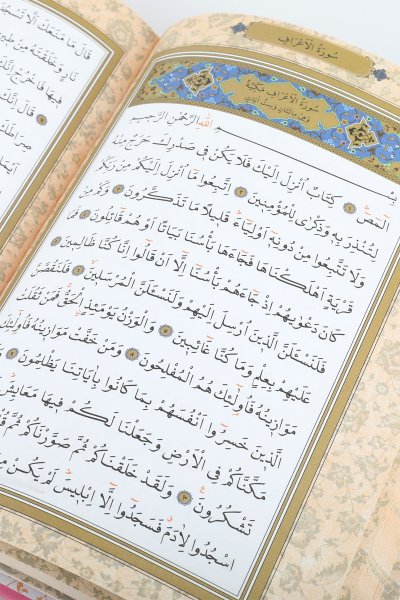 سُورَةُ الْاَعْرَافِ
سُورَةُ الْاَعْرَافِ مَكِّيَّةٌ
وَهِيَ مِائَتَانِ وَسِتُّ اٰيَاتٍ
بِسْمِ اللّٰهِ الرَّحْمٰنِ الرَّحِيمِ
الٓمٓصٓ ١ كِتَابٌ اُنْزِلَ اِلَيْكَ فَلَا يَكُنْ فِى صَدْرِكَ حَرَجٌ مِنْهُ
لِتُنْذِرَ بِهِ وَذِكْرٰى لِلْمُؤْمِنِينَ ٢ اِتَّبِعُوا مَا اُنْزِلَ اِلَيْكُمْ مِنْ رَبِّكُمْ
وَلَا تَتَّبِعُوا مِنْ دُونِهِ اَوْلِيَاءَ قَلِيلًا مَا تَذَكَّرُونَ ٣ وَكَمْ مِنْ
قَرْيَةٍ اَهْلَكْنَاهَا فَجَاءَهَا بَأْسُنَا بَيَاتًا اَوْ هُمْ قَائِلُونَ ٤ فَمَا
كَانَ دَعْوٰيهُمْ اِذْ جَاءَهُمْ بَأْسُنَا اِلَّا اَنْ قَالُوا اِنَّا كُنَّا ظَالِمِينَ ٥
فَلَنَسْـَٔلَنَّ الَّذِينَ اُرْسِلَ اِلَيْهِمْ وَلَنَسْـَٔلَنَّ الْمُرْسَلِينَ ٦ فَلَنَقُصَّنَّ
عَلَيْهِمْ بِعِلْمٍ وَمَا كُنَّا غَائِبِينَ ٧ وَالْوَزْنُ يَوْمَئِذٍ الْحَقُّ فَمَنْ ثَقُلَتْ
مَوَازِينُهُ فَاُولٰئِكَ هُمُ الْمُفْلِحُونَ ٨ وَمَنْ خَفَّتْ مَوَازِينُهُ فَاُولٰئِكَ
الَّذِينَ خَسِرُوا اَنْفُسَهُمْ بِمَا كَانُوا بِاٰيَاتِنَا يَظْلِمُونَ ٩
مَكَّنَّاكُمْ فِى الْاَرْضِ وَجَعَلْنَا لَكُمْ فِيهَا مَعَايِشَ
تَشْكُرُونَ ١٠ وَلَقَدْ خَلَقْنَاكُمْ ثُمَّ صَوَّرْنَاكُمْ ثُمَّ
اسْجُدُوا لِاٰدَمَ فَسَجَدُوا اِلَّا اِبْلِيسَ لَمْ يَكُنْ
قَالَ مَا مَنَعَكَ اَلَّا
نَارٍ وَخَلَقْتَهُ مِنْ طِينٍ
فِيهَا فَاخْرُجْ اِنَّكَ
قَالَ اِنَّكَ
صِرَاطَكَ